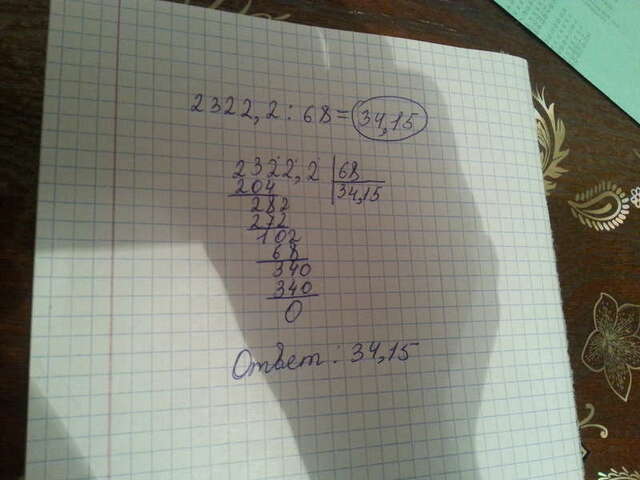 2322,2 : 68 = 34,15
2322,2 68
204 34,15
282
272
102
68
340
340
0
Ответ : 34,15